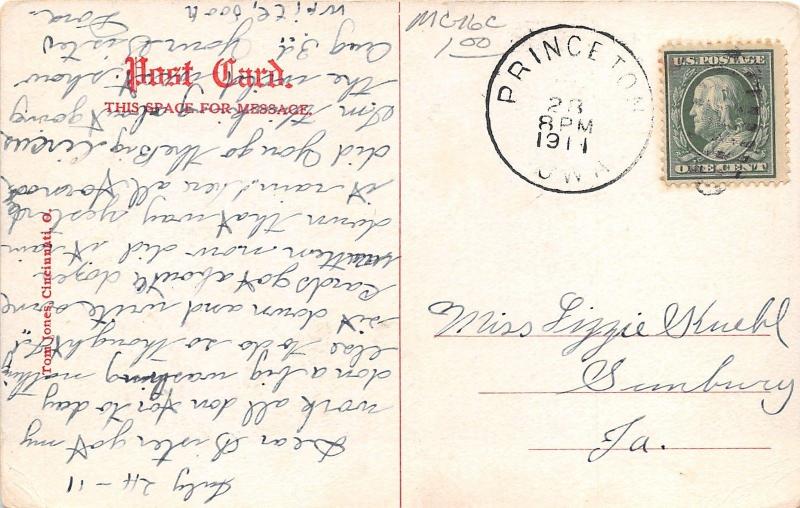 Post Card.
THIS SPACE FOR MESSAGE.
MC16C
1 00
PRINCETON
28
8 PM
1911
OWA
U.S. POSTAGE
ONE CENT
Miss Lizzie Kuehl
Sunbury
Ia.
Tom Jones, Cincinnati, O.
July 24-11
Dear Sister got my
work all don for to day
don a big washing nothing
else to do so thought I'll
sit down and write some
cards got about dozen
now did it rain
down that way yesterd
it rained here all forenoon
did you go the Big Circus
think I going
the show
Aug 3d Your Sister
Dora.
write soon